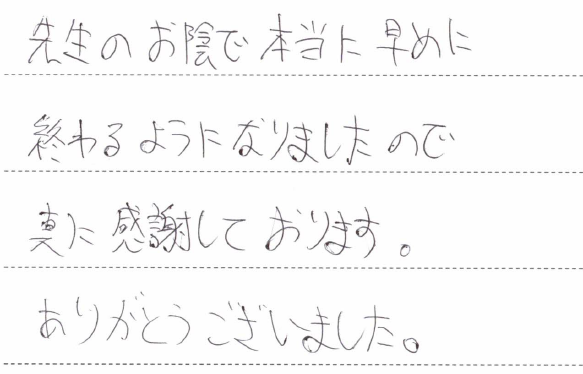 先生のお陰で本当に早めに
終わるようになりましたので
真に感謝しております。
ありがとうございました。